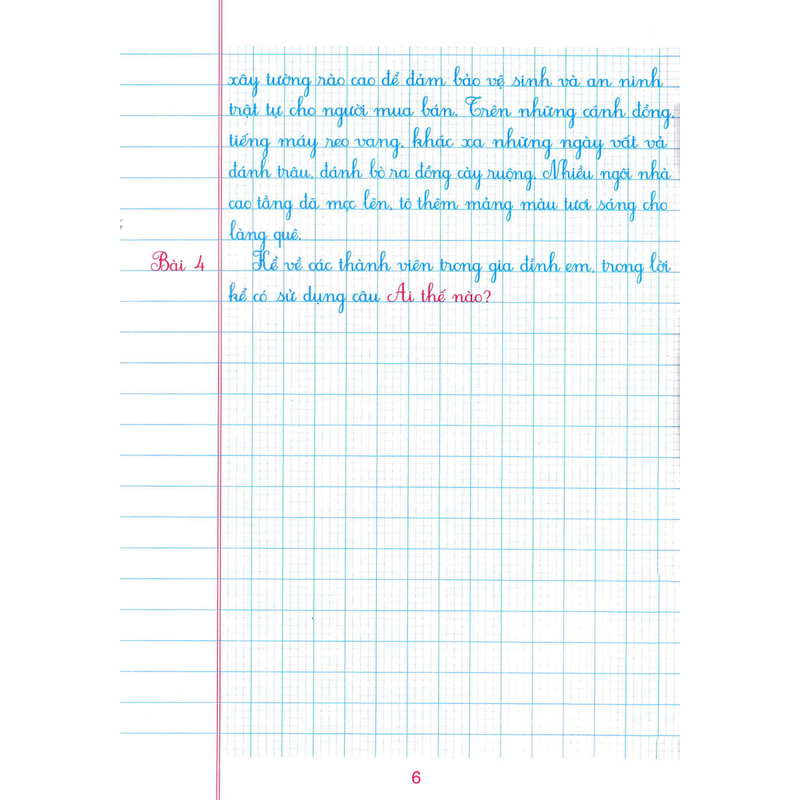 xây tường rào cao để đảm bảo vệ sinh và an ninh
trật tự cho người mua bán. Trên những cánh đồng,
tiếng máy reo vang, khác xa những ngày vất vả
đánh trâu, đánh bò ra đồng cày ruộng. Nhiều ngôi nhà
cao tầng đã mọc lên, tô thêm mảng màu tươi sáng cho
làng quê.
Bài 4 Kể về các thành viên trong gia đình em, trong lời
kể có sử dụng câu Ai thế nào?
6